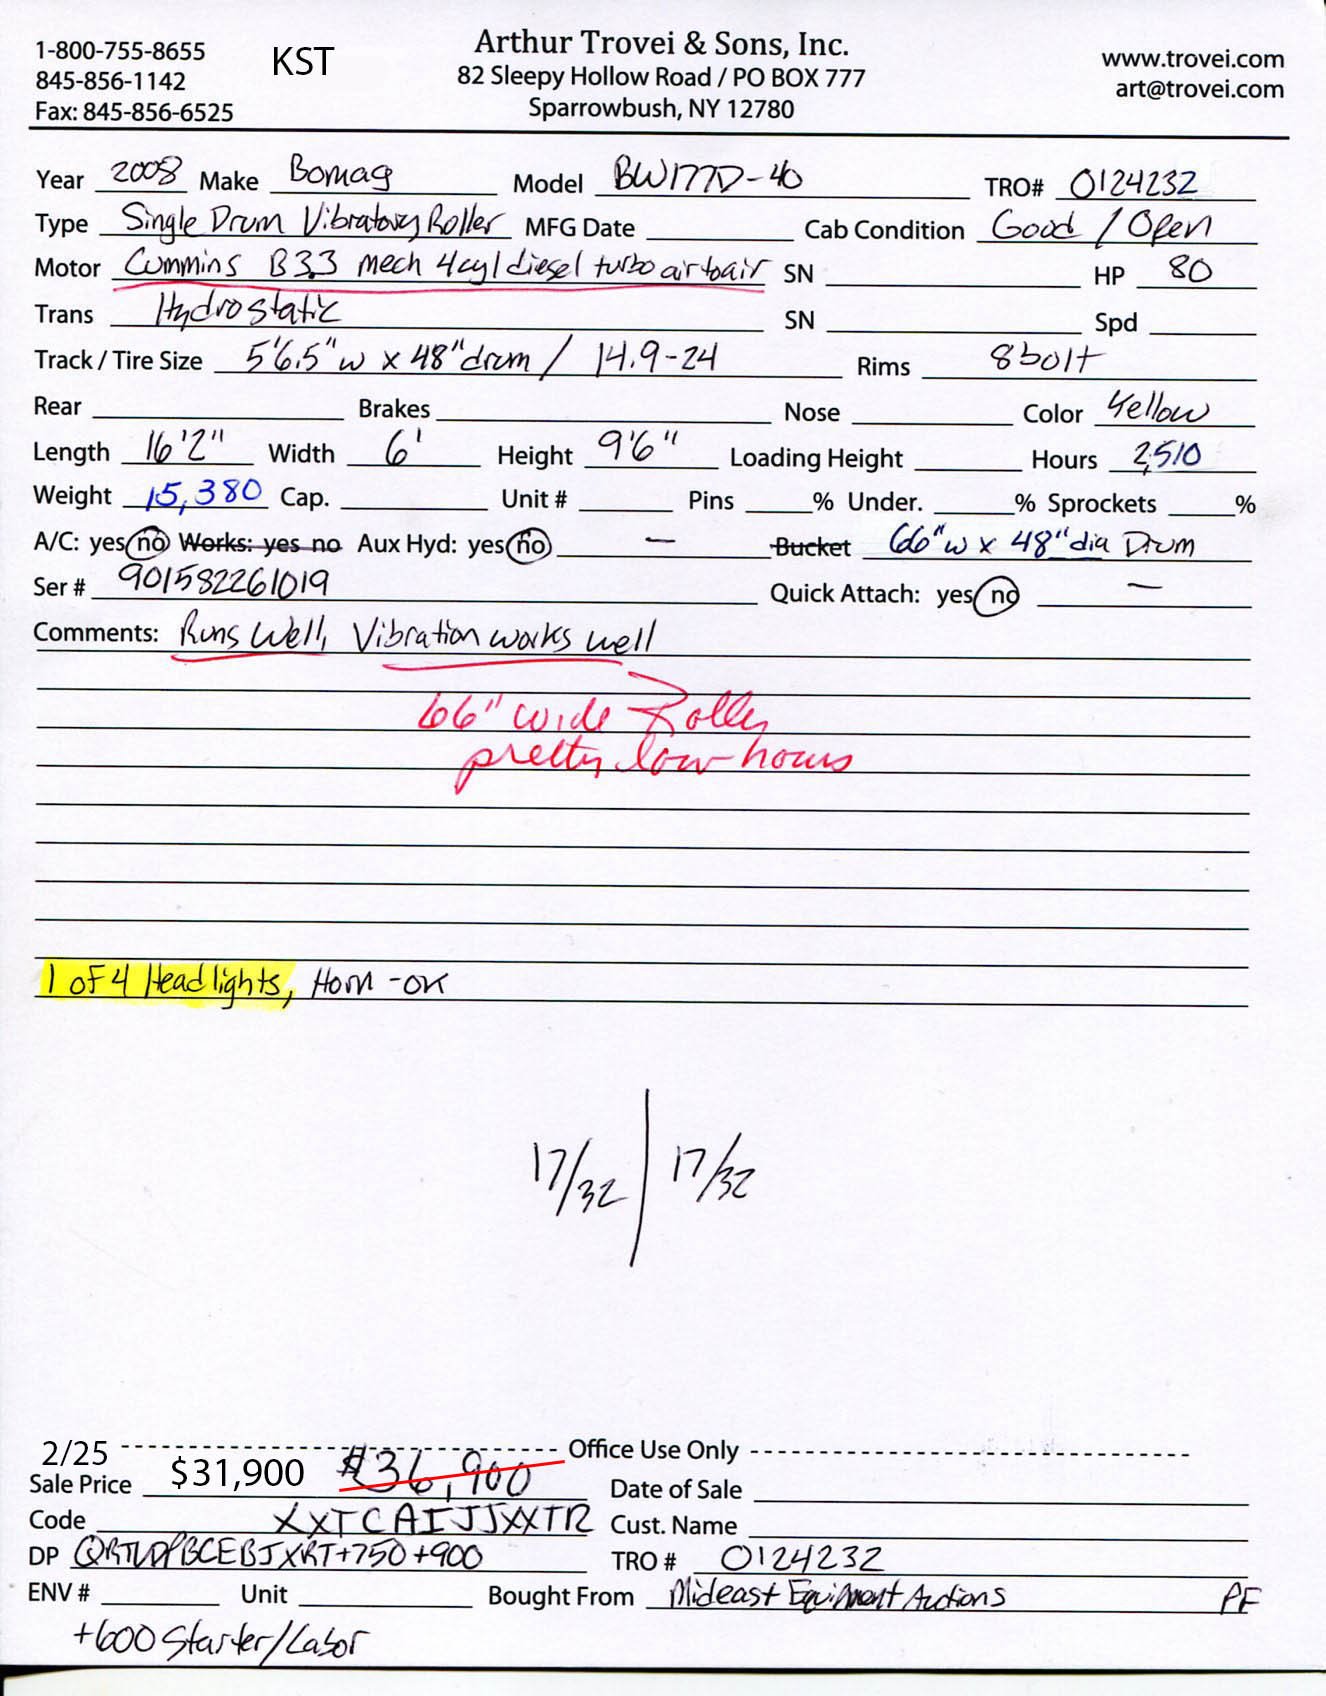 1-800-755-8655 KST Arthur Trovei & Sons, Inc. www.trovei.com
845-856-1142 82 Sleepy Hollow Road / PO BOX 777 art@trovei.com
Fax: 845-856-6525 Sparrowbush, NY 12780
Year 2008 Make Bomag Model BW177D-40 TRO# 0124232
Type Single Drum Vibratory Roller MFG Date Cab Condition Good / Open
Motor Cummins B3.3 mech 4cyl diesel turbo air to air SN HP 80
Trans Hydrostatic SN Spd
Track / Tire Size 5'6.5" w x 48" drum / 14.9-24 Rims 8 bolt
Rear Brakes Nose Color Yellow
Length 16'2" Width 6' Height 9'6" Loading Height Hours 2,510
Weight 15,380 Cap. Unit # Pins % Under. % Sprockets %
A/C: yes no Works: yes no Aux Hyd: yes no — Bucket 66" w x 48" dia Drum
Ser # 901582261019 Quick Attach: yes no —
Comments: Runs Well, Vibration works well
66" wide Roller
pretty low hours
1 of 4 Headlights, Horn -OK
17/32 | 17/32
2/25 Office Use Only
Sale Price $31,900 $36,900 Date of Sale
Code XXTCAIJJXXTR Cust. Name
DP +750+900 TRO # 0124232
ENV # Unit Bought From Mideast Equipment Auctions PF
+600 Starter/Labor